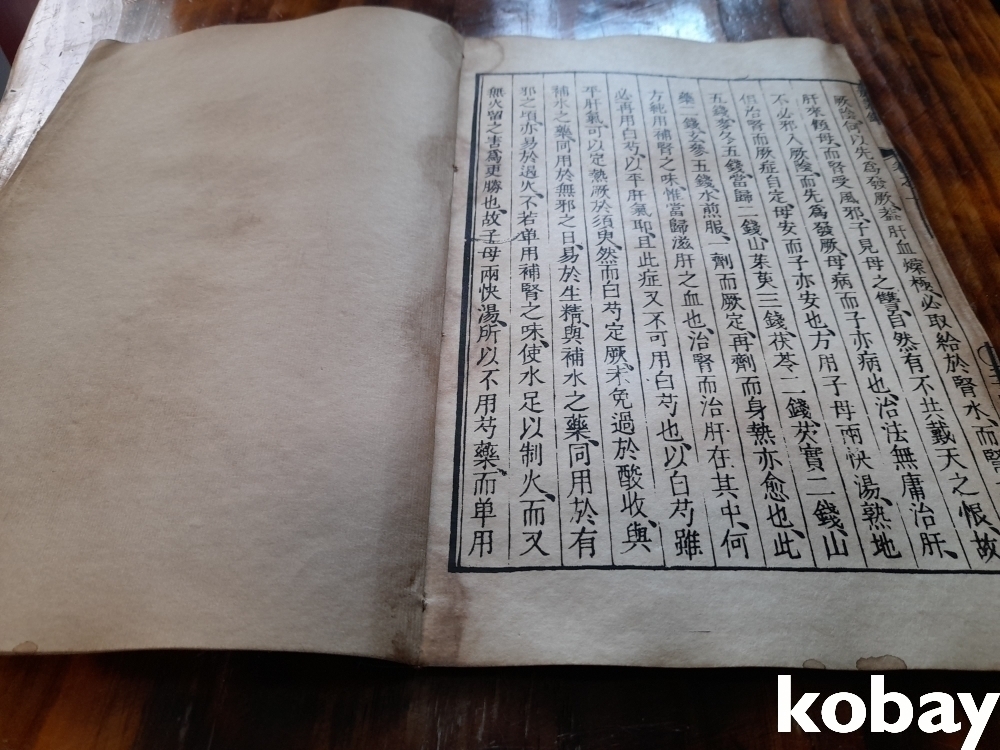 厥陰會以先爲發厥、蓋肝血燥極、必取給於腎水、而腎
肝來顧母、而腎受風邪、子見母之讐、自然有不共戴天之恨、故
不必邪入厥陰、而先爲發厥、母病而子亦病也、治法無庸治肝、
但治腎而厥症自定、母安而子亦安也、方用子母兩快湯、熟地
五錢麥冬五錢當歸二錢山茱萸三錢、茯苓二錢、芡實二錢、山
藥二錢玄參五錢水煎服、一劑而厥定、再劑而身熱亦愈也、此
方純用補腎之味、惟當歸滋肝之血也、治腎而治肝在其中、何
必再用白芍以平肝氣耶、且此症又不可用白芍也、以白芍雖
平肝氣可以定熱厥於須臾、然而白芍定厥、未免過於酸收、與
補水之藥、同用於無邪之日、易於生精、與補水之藥、同用於有
邪之頃亦易於遏火、不若单用補腎之味、使水足以制火、而又
無火留之害爲更勝也、故子母兩快湯、所以不用芍藥、而单用
kobay